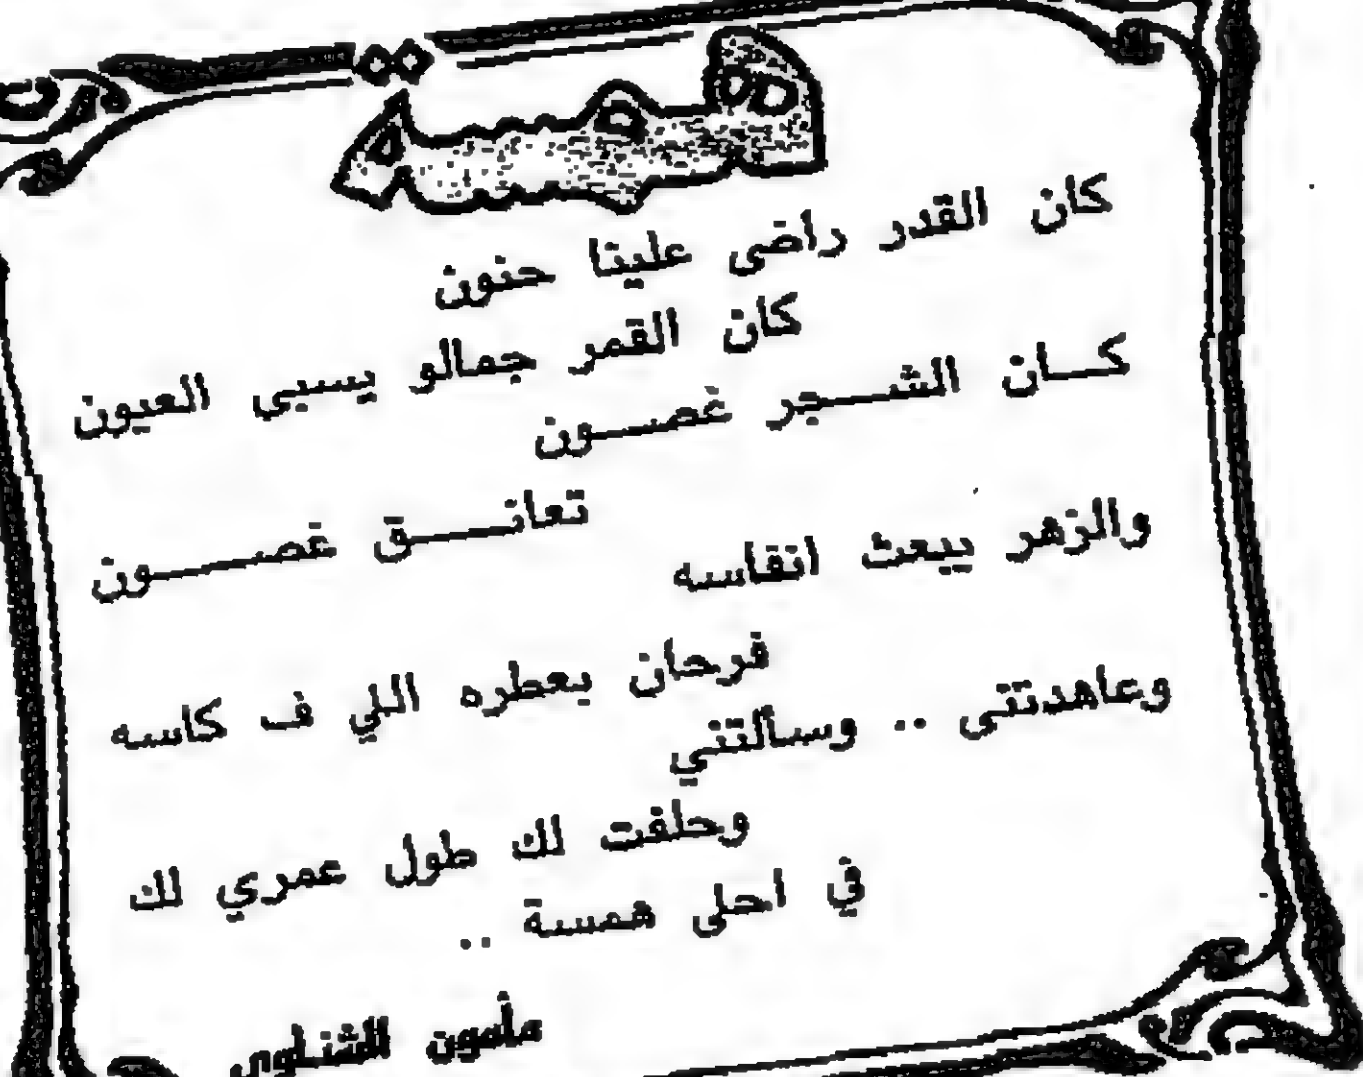 همسه
كان القدر راضى علينا حنون
كان القمر جمالو يسبي العيون
كــان الشــجر غصــون
تعانــق غصــون
والزهر يبعث انفاسه
فرحان يعطره اللي ف كاسه
وعاهدتنى .. وسألتني
وحلفت لك طول عمري لك
في احلى همسة ..
مأمون الشناوى